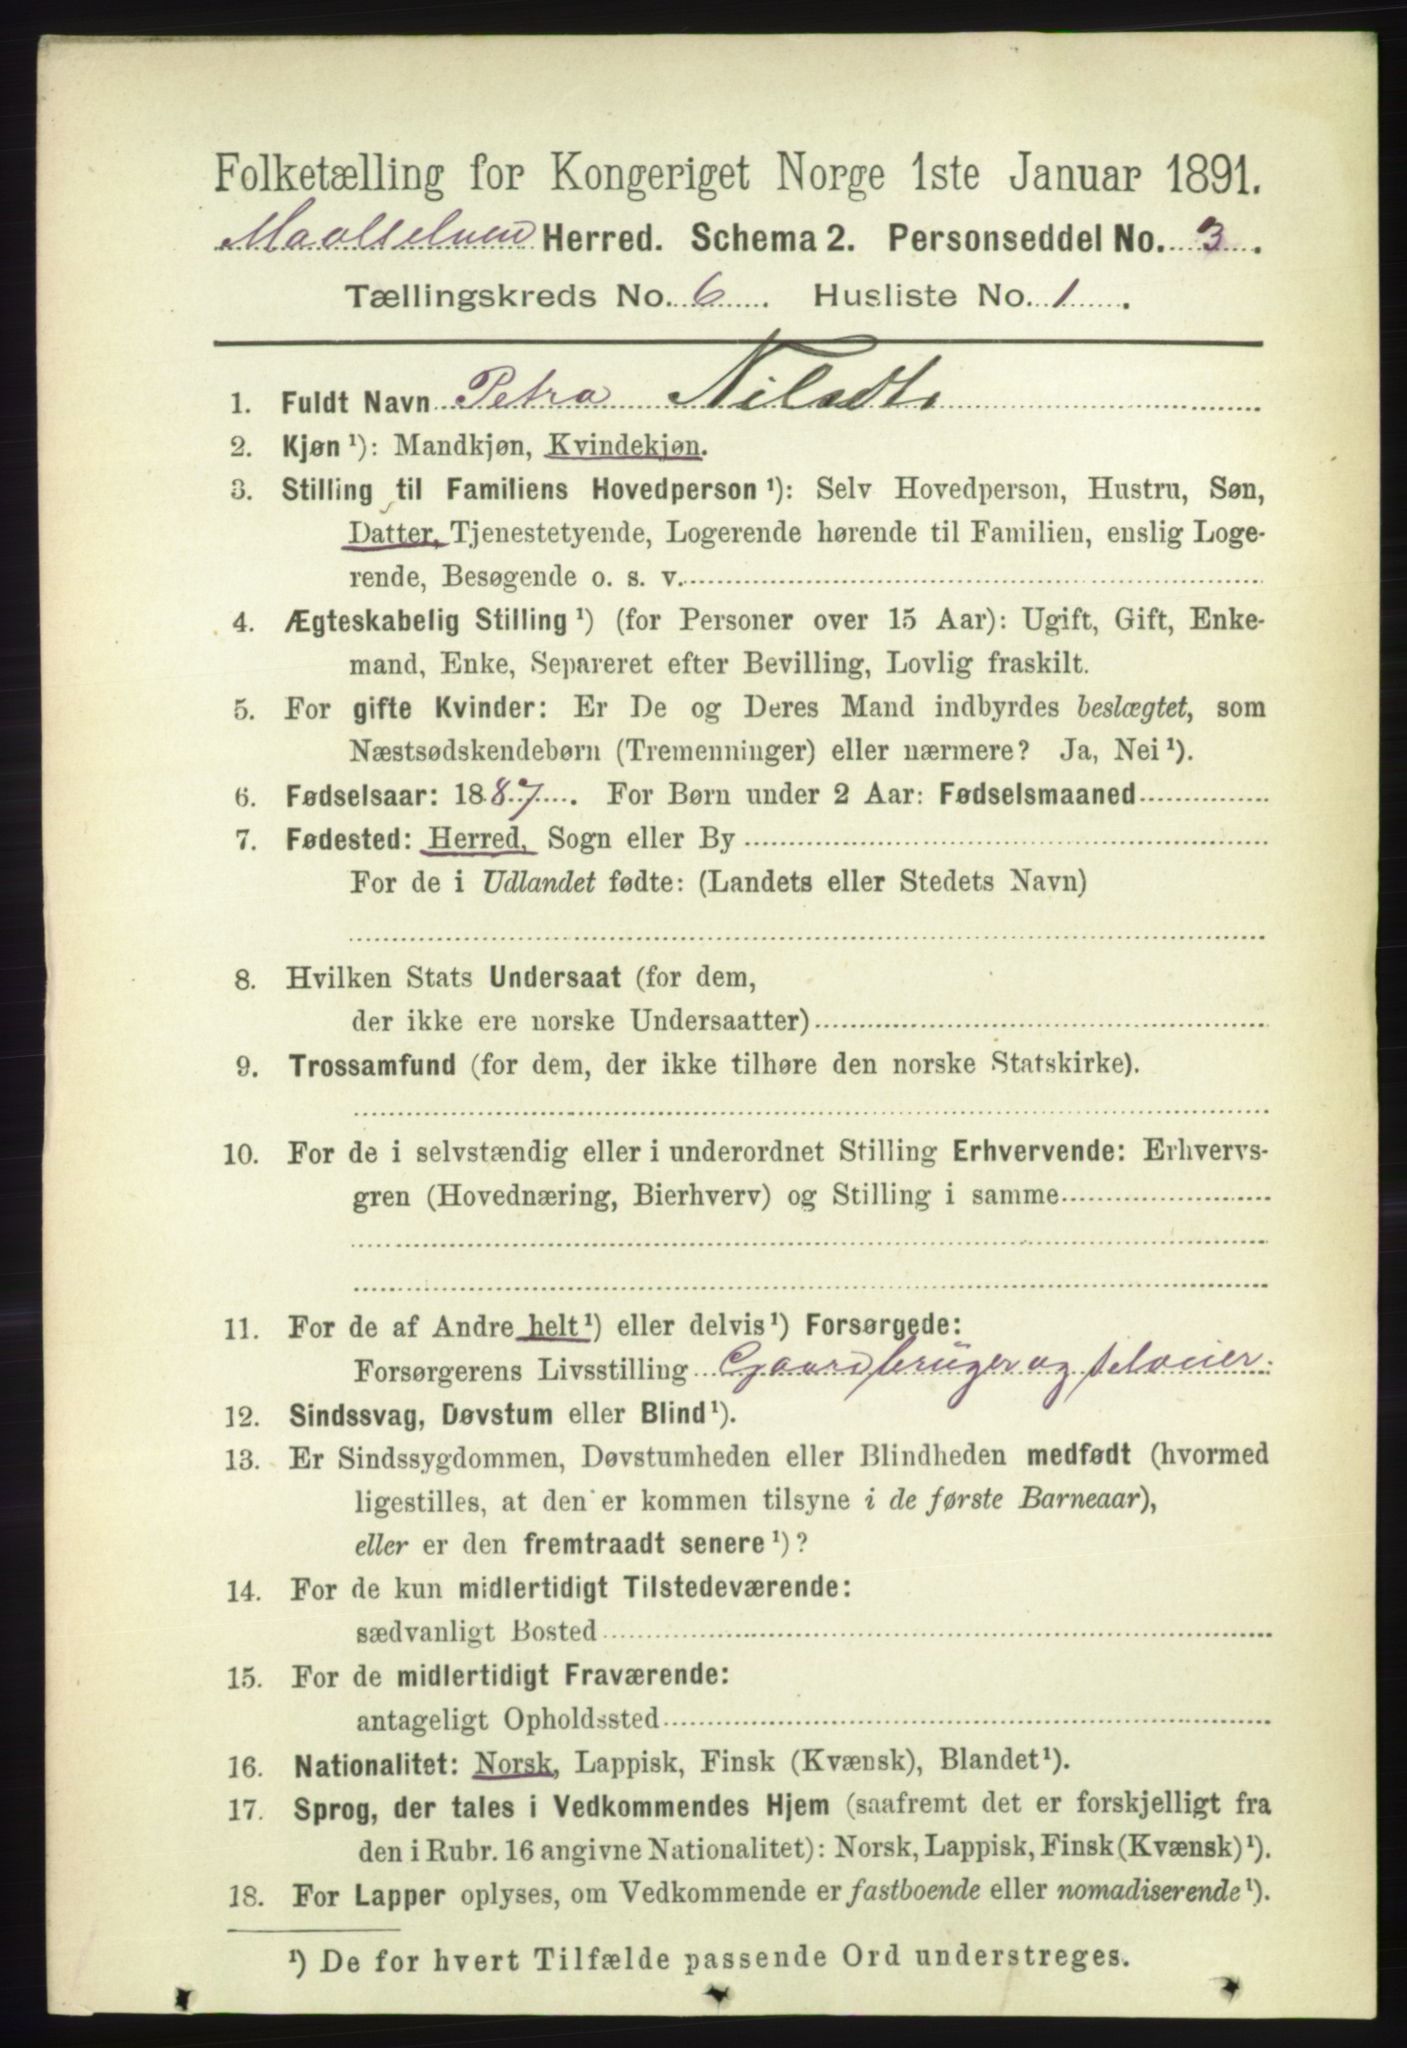 Folketælling for Kongeriget Norge 1ste Januar 1891.
Maalselven Herred. Schema 2. Personseddel No. 3.
Tællingskreds No. 6. Husliste No. 1.
1. Fuldt Navn Petra Nilsdtr
2. Kjøn ¹): Mandkjøn, Kvindekjøn.
3. Stilling til Familiens Hovedperson ¹): Selv Hovedperson, Hustru, Søn,
Datter, Tjenestetyende, Logerende hørende til Familien, enslig Loge-
rende, Besøgende o. s. v.
4. Ægteskabelig Stilling ¹) (for Personer over 15 Aar): Ugift, Gift, Enke-
mand, Enke, Separeret efter Bevilling, Lovlig fraskilt.
5. For gifte Kvinder: Er De og Deres Mand indbyrdes beslægtet, som
Næstsødskendebørn (Tremenninger) eller nærmere? Ja, Nei ¹).
6. Fødselsaar: 1887. For Børn under 2 Aar: Fødselsmaaned
7. Fødested: Herred, Sogn eller By
For de i Udlandet fødte: (Landets eller Stedets Navn)
8. Hvilken Stats Undersaat (for dem,
der ikke ere norske Undersaatter)
9. Trossamfund (for dem, der ikke tilhøre den norske Statskirke).
10. For de i selvstændig eller i underordnet Stilling Erhvervende: Erhvervs-
gren (Hovednæring, Bierhverv) og Stilling i samme
11. For de af Andre helt ¹) eller delvis ¹) Forsørgede:
Forsørgerens Livsstilling Gaardbruger og selveier.
12. Sindssvag, Døvstum eller Blind ¹).
13. Er Sindssygdommen, Døvstumheden eller Blindheden medfødt (hvormed
ligestilles, at den er kommen tilsyne i de første Barneaar),
eller er den fremtraadt senere ¹)?
14. For de kun midlertidigt Tilstedeværende:
sædvanligt Bosted
15. For de midlertidigt Fraværende:
antageligt Opholdssted
16. Nationalitet: Norsk, Lappisk, Finsk (Kvænsk), Blandet ¹).
17. Sprog, der tales i Vedkommendes Hjem (saafremt det er forskjelligt fra
den i Rubr. 16 angivne Nationalitet): Norsk, Lappisk, Finsk (Kvænsk) ¹).
18. For Lapper oplyses, om Vedkommende er fastboende eller nomadiserende ¹).
¹) De for hvert Tilfælde passende Ord understreges.